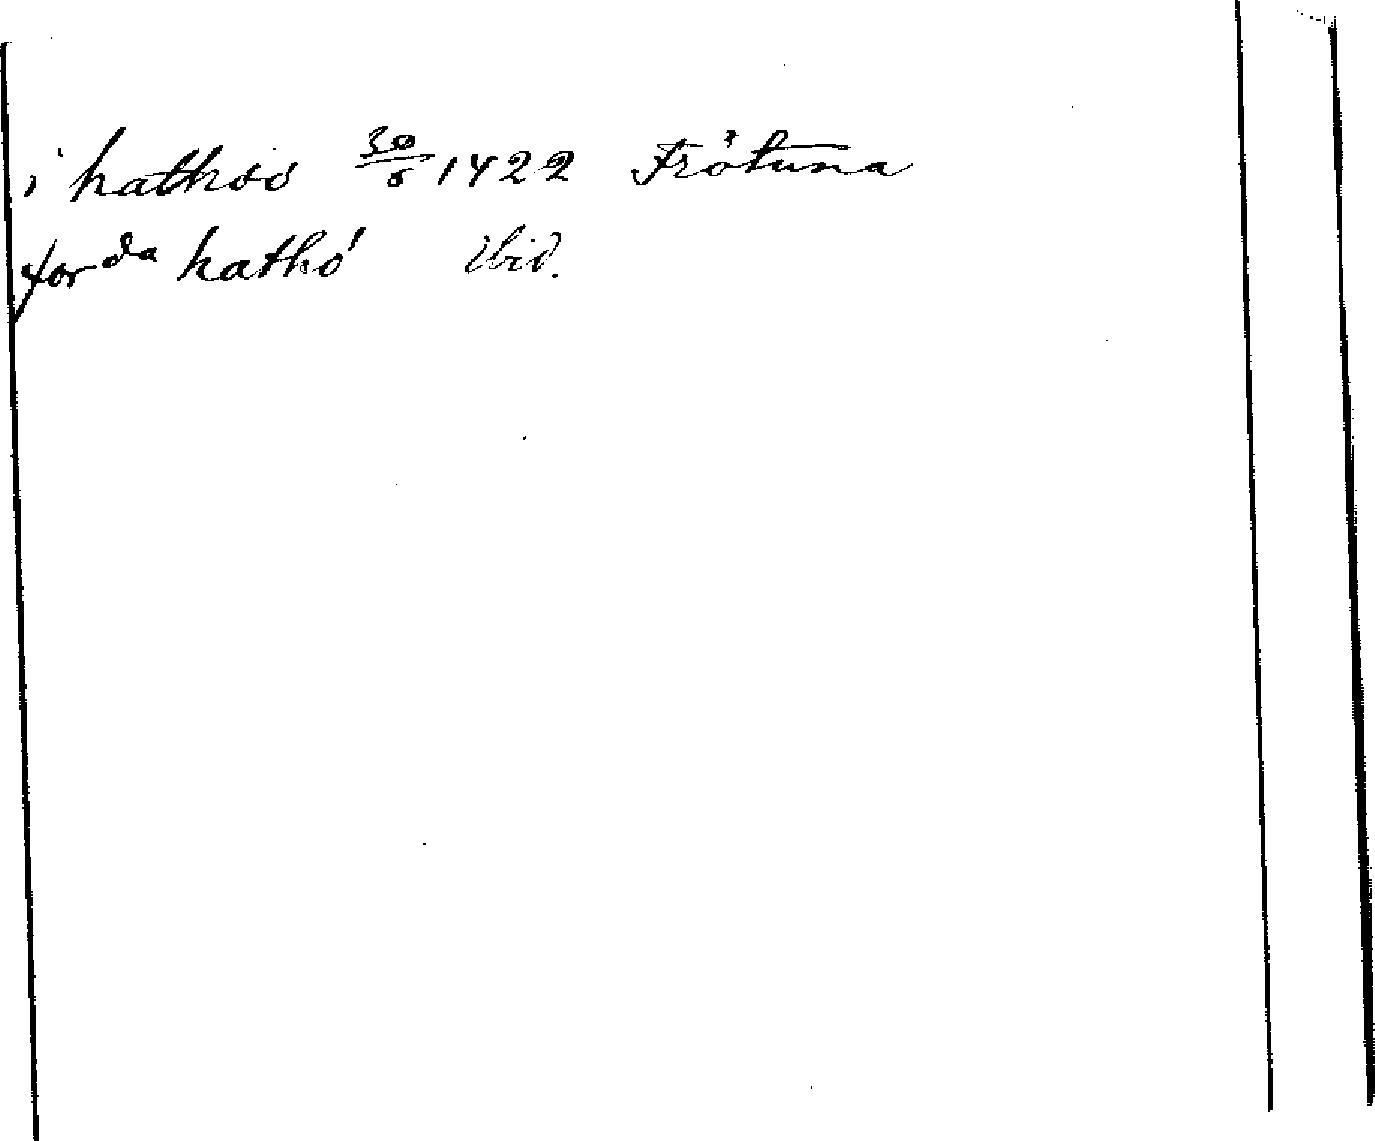 i hathoo 30/6 1422 Frötuna
for da hathó ibid.